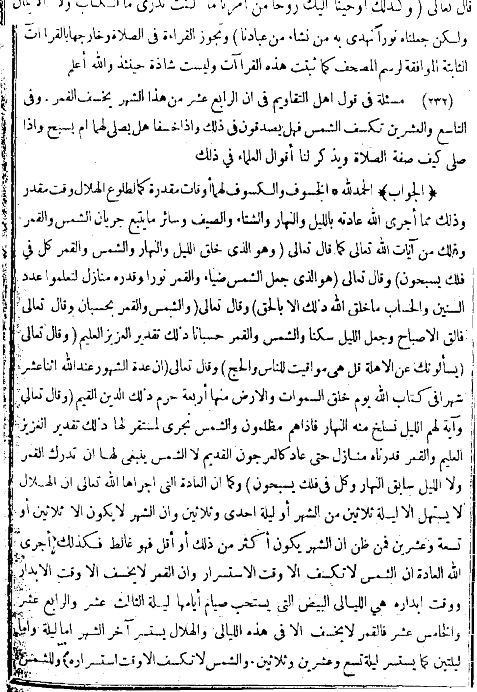 قال تعالى ( وكذلك أوحينا اليك روحا من أمرنا ما كنت تدرى ما الكتاب ولا الايمان
ولكن جعلناه نورا نهدى به من نشاء من عبادنا ) وتجوز القراءة فى الصلاة وخارجها بالقراآت
الثابتة الموافقة لرسم المصحف كما ثبتت هذه القراآت وليست شاذة حينئذ والله أعلم
(٢٣٢) مسئلة فى قول اهل التقاويم فى ان الرابع عشر من هذا الشهر يخسف القمر . وفى
التاسع والعشرين تكسف الشمس فهل يصدقون فى ذلك واذا خسفا هل يصلى لهما ام يسبح واذا
صلى كيف صفة الصلاة ويذكر لنا أقوال العلماء فى ذلك
﴿ الجواب ﴾ الحمد لله * الخسوف والكسوف لهما أوقات مقدرة كما لطلوع الهلال وقت مقدر
وذلك مما أجرى الله عادته بالليل والنهار والشتاء والصيف وسائر ما يتبع جريان الشمس والقمر
وذلك من آيات الله تعالى كما قال تعالى ( وهو الذى خلق الليل والنهار والشمس والقمر كل فى
فلك يسبحون ) وقال تعالى ( هو الذى جعل الشمس ضياء والقمر نورا وقدره منازل لتعلموا عدد
السنين والحساب ما خلق الله ذلك الا بالحق ) وقال تعالى ( والشمس والقمر بحسبان وقال تعالى
فالق الاصباح وجعل الليل سكنا والشمس والقمر حسبانا ذلك تقدير العزيز العليم ( وقال تعالى
( يسألونك عن الاهلة قل هى مواقيت للناس والحج ) وقال تعالى ( ان عدة الشهور عند الله اثنا عشر
شهرا فى كتاب الله يوم خلق السموات والارض منها أربعة حرم ذلك الدين القيم ( وقال تعالى
وآية لهم الليل نسلخ منه النهار فاذا هم مظلمون والشمس تجرى لمستقر لها ذلك تقدير العزيز
العليم والقمر قدرناه منازل حتى عاد كالعرجون القديم لا الشمس ينبغى لها ان تدرك القمر
ولا الليل سابق النهار وكل فى فلك يسبحون ) وكما ان العادة التى اجراها الله تعالى ان الهلال
لا يستهل الا ليلة ثلاثين من الشهر أو ليلة احدى وثلاثين وان الشهر لا يكون الا ثلاثين أو
تسعة وعشرين فمن ظن ان الشهر يكون أكثر من ذلك أو أقل فهو غالط فكذلك أجرى
الله العادة ان الشمس لا تكسف الا وقت الاستسرار وان القمر لا يخسف الا وقت الابدار
ووقت ابداره هى الليالى البيض التى يستحب صيام أيامها ليلة الثالث عشر والرابع عشر
والخامس عشر فالقمر لا يخسف الا فى هذه الليالى والهلال يستسر آخر الشهر اما ليلة واما
ليلتين كما يستسر ليلة تسع وعشرين وثلاثين . والشمس لا تكسف الا وقت استسراره ) وللشمس